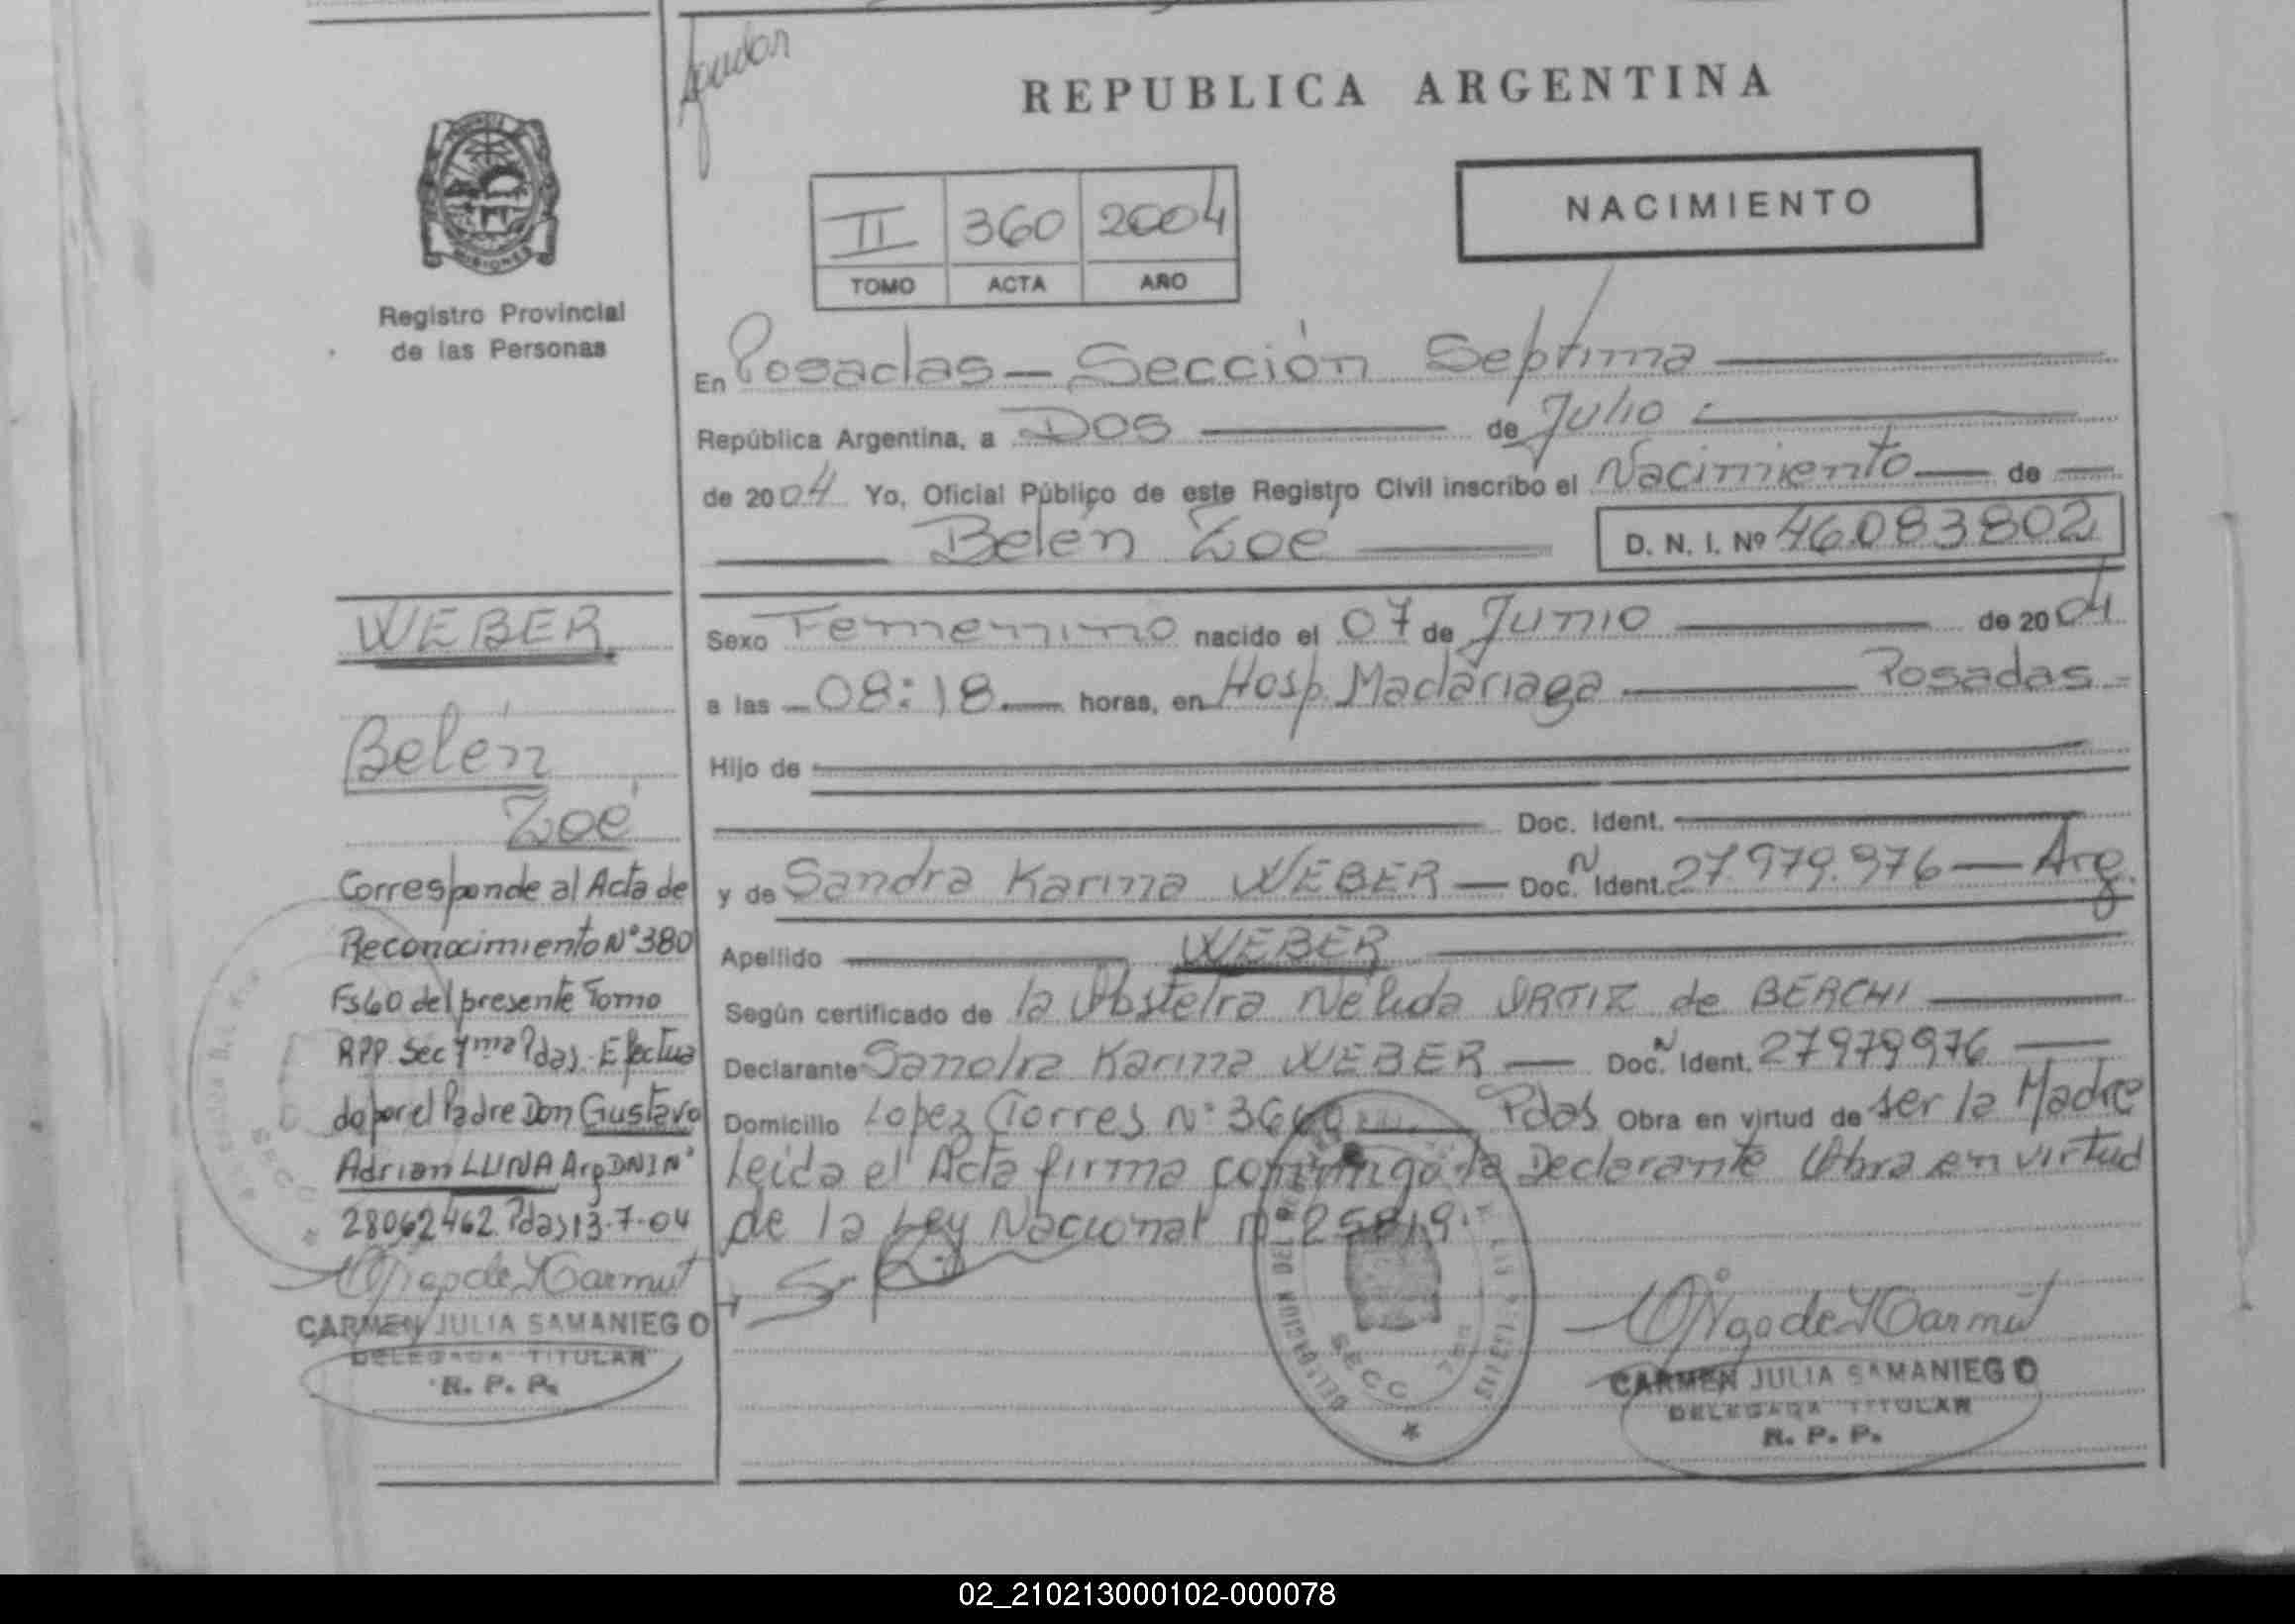 REPUBLICA ARGENTINA
PROVINCIA DE
MISIONES
Registro Provincial
de las Personas
II 360 2004
TOMO ACTA AÑO
NACIMIENTO
En Posadas - Sección Septima
República Argentina, a Dos de Julio
de 2004 Yo, Oficial Público de este Registro Civil inscribo el Nacimiento de
Belén Zoé D. N. I. Nº 46.083802
Sexo Femenino nacido el 07 de Junio de 2004
a las 08:18 horas, en Hosp. Madariaga Posadas
Hijo de
Doc. Ident.
y de Sandra Karina WEBER Doc. N Ident. 27.979.976 - Arg.
Apellido WEBER
Según certificado de la Obstetra Nélida ORTIZ de BERCHI
Declarante Sandra Karina WEBER Doc. N Ident. 27979976
Domicilio Lopez Torres Nº 3660 Pdas Obra en virtud de ser la Madre
Leida el Acta firma conmigo la Declarante Obra en virtud
de la Ley Nacional nº 25819.
WEBER
Belén
Zoé
Corresponde al Acta de
Reconocimiento Nº 380
Fs 60 del presente Tomo
RPP. Sec 7ma Pdas. Efectua
do por el Padre Don Gustavo
Adrian LUNA Arg DNI Nº
28062462. Pdas 13-7-04
CARMEN JULIA SAMANIEGO
DELEGADA TITULAR
R. P. P.
SECC. 7ma
CARMEN JULIA SAMANIEGO
DELEGADA TITULAR
R. P. P.
02_210213000102-000078